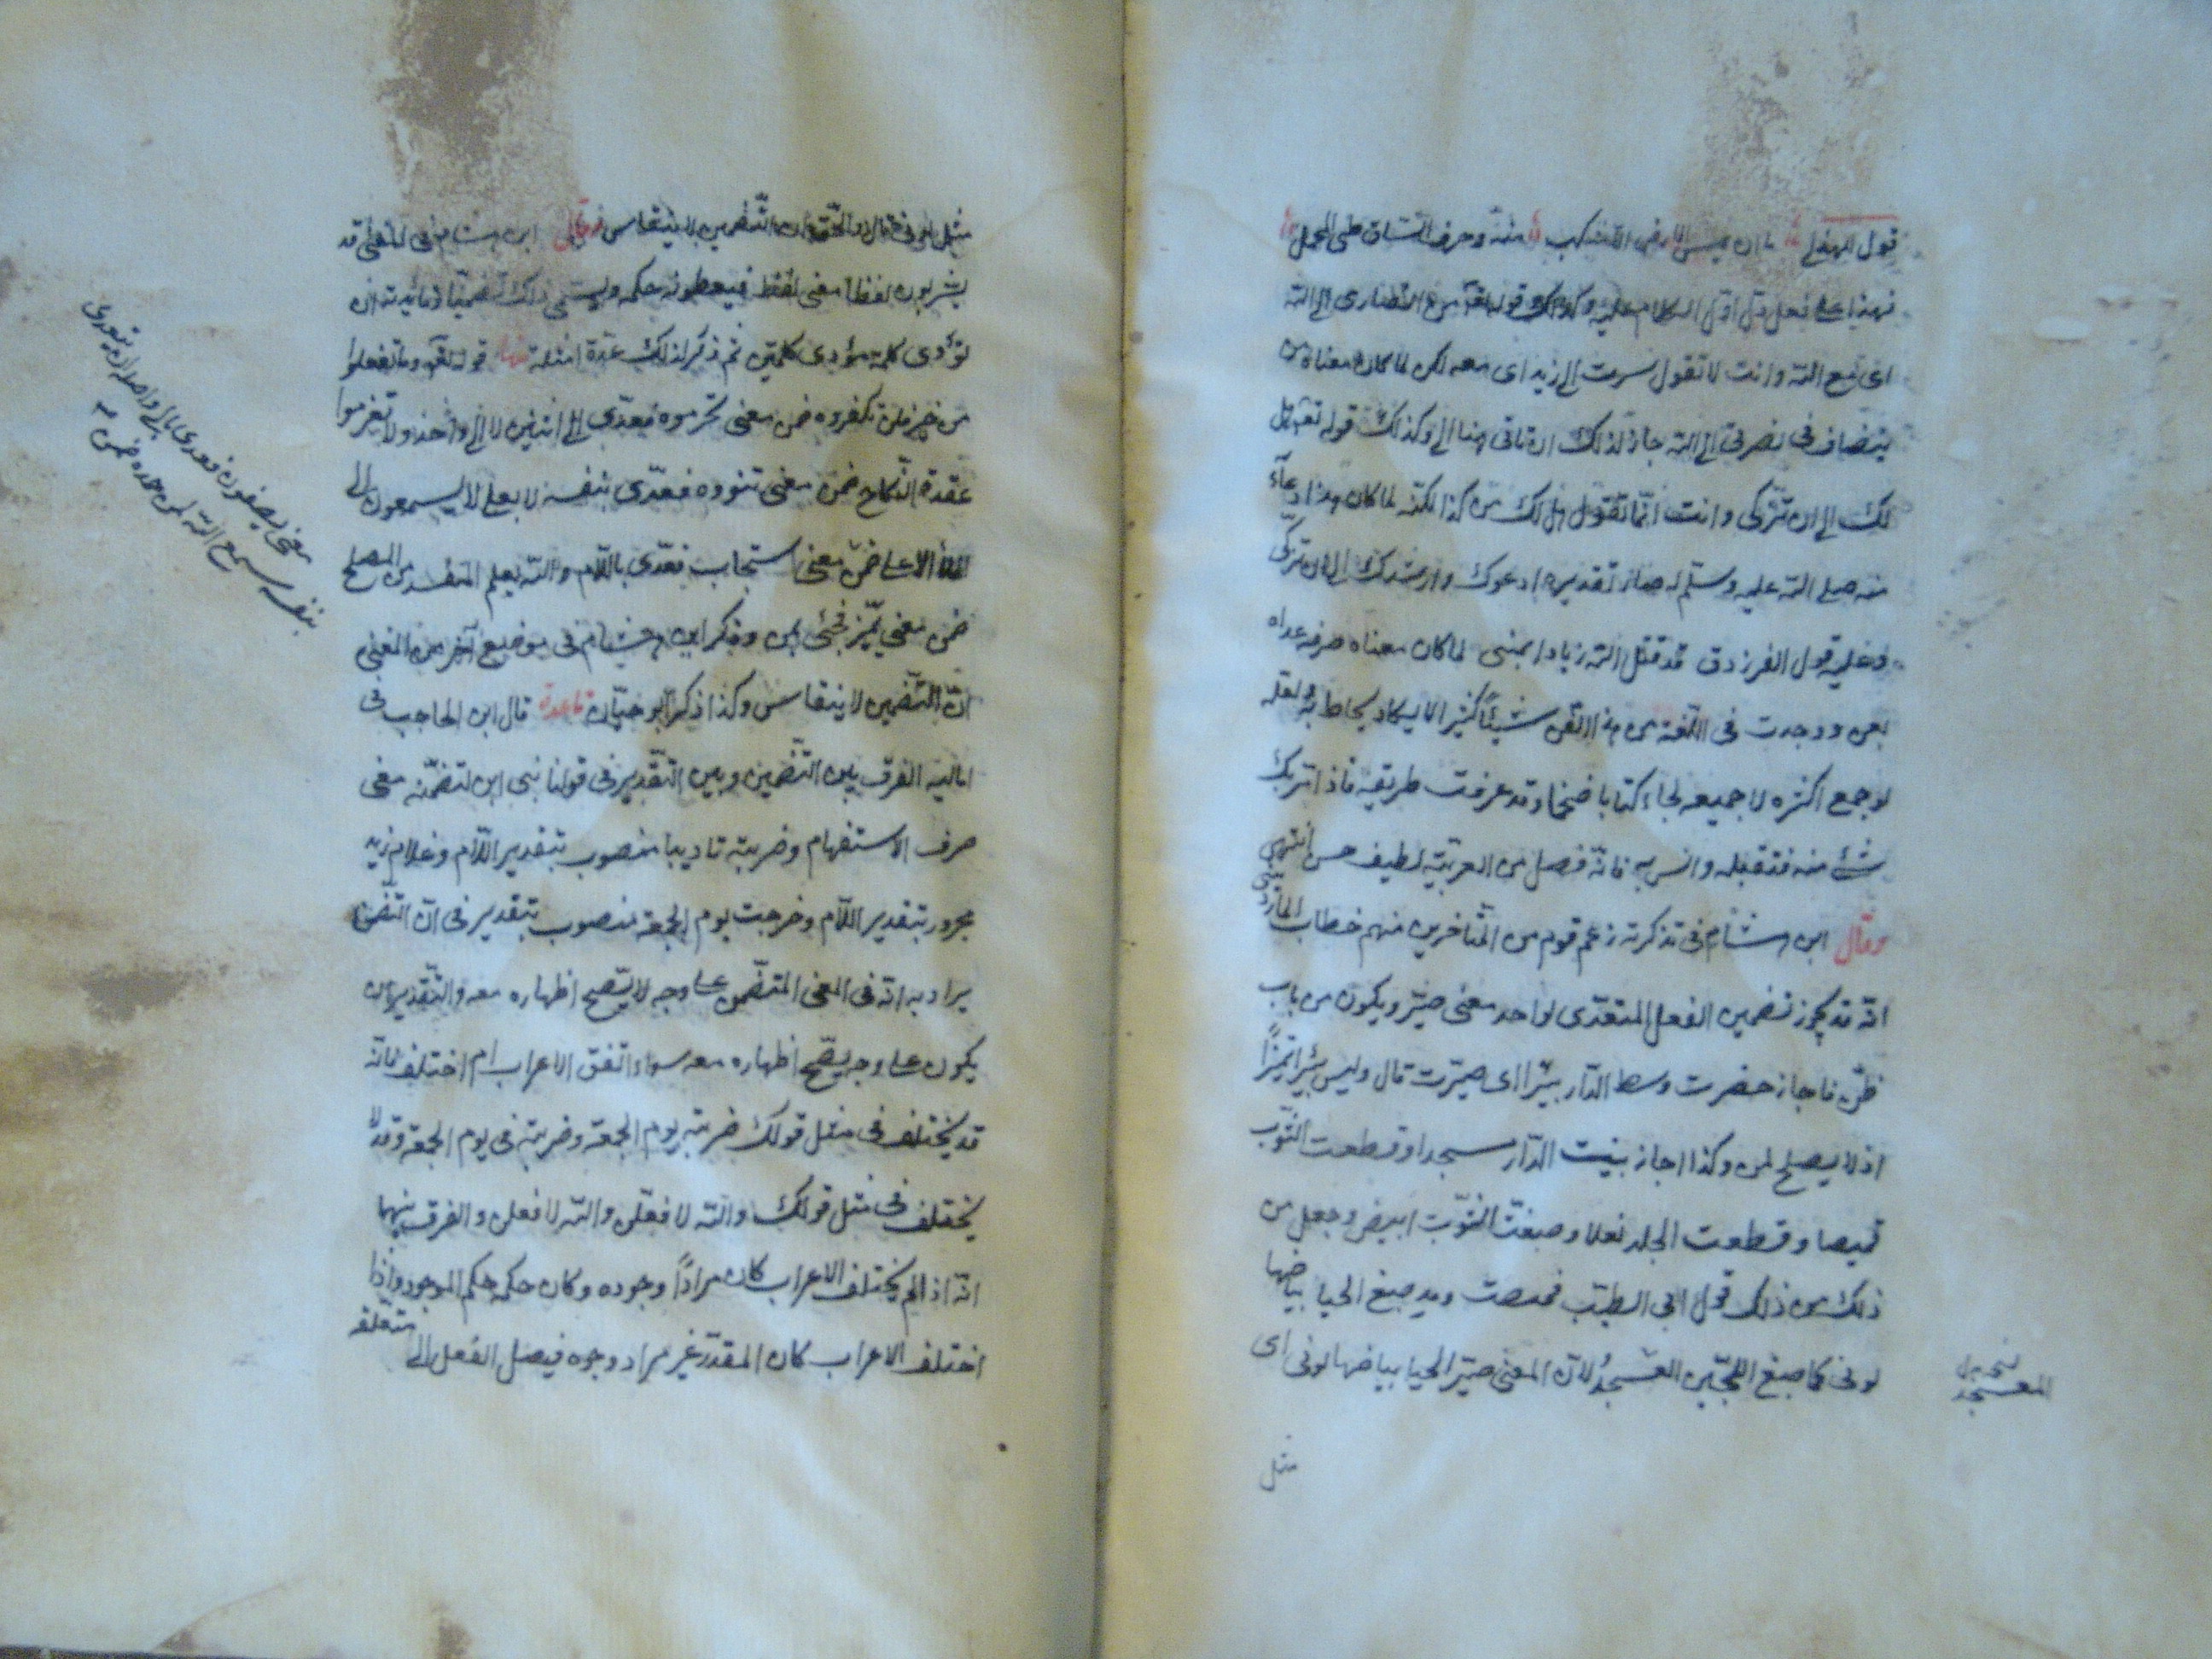 قول الهذلي ما ان يمس الارض الا منكب منه وحرف الساق طي المحمل
فهذا على فعل دل اول الكلام عليه وكذلك قوله تعـ من انصارى الى الله
اى مع الله وانت لا تقول سرت الى زيد اى معه لكن لما كان معناه من
ينضاف فى نصرتى الى الله جاز لذلك ان تاتى هنا الى وكذلك قوله تعـ هل
لك الى ان تزكى وانت انما تقول هل لك من كذا لكنه لما كان هذا دعآء
منه صلى الله عليه وسلم له صار تقديره ادعوك وارشدك الى ان تزكى
وعليه قول الفرزدق قد قتل الله زيادا عنى لما كان معناه صرفه عداه
بعن ووجدت فى اللغة من هذا الفن شيئًا كثيرا لا يكاد يحاط به ولعله
لو جمع اكثره لا جميعه لجاء كتابا ضخما وقد عرفت طريقه فاذا مر بك
شئ منه فتقبله وانس به فانه فصل من العربية لطيف حسن انتهى
وقال ابن هشام فى تذكرته زعم قوم من المتأخرين منهم خطاب الماردى
انه قد يجوز تضمين الفعل المتعدى لواحد معنى صير ويكون من باب
ظن فاجاز حفرت وسط الدار بئرا اى صيرت قال وليس بئرا تميزًا
اذ لا يصلح لمن وكذا اجاز بنيت الدار مسجدا وقطعت الثوب
قميصا وقطعت الجلد نعلا وصبغت الثوب ابيض وجعل من
ذلك من ذلك قول ابى الطيب فمضت وقد صبغ الحيا بياضها
لونى كما صبغ اللجين العسجدُ لان المعنى صير الحيا بياضها لونى اى
العسجد
مثل
مثل لونى قال والحق ان التضمين لا ينقاس وقال ابن هشام فى المغنى قد
يشربون لفظا معنى لفظ فيعطونه حكمه ويسمى ذلك تضمينًا وفائدته ان
تؤدى كلمة مؤدى كلمتين ثم ذكر لذلك عدة امثلة منها قوله تعـ وما تفعلوا
من خير فلن تكفروه ضمن معنى تحرموه فعدى الى اثنين لا الى واحد ولا تعزموا
عقدة النكاح ضمن معنى تنووه فعدى بنفسه لا بعلى لا يسمعون الى
الملأ الاعلى ضمن معنى استجاب فعدى باللام والله يعلم المفسد من المصلح
ضمن معنى يميز فجئ بمن وذكر ابن هشام فى موضع آخر من المغنى
ان التضمين لا ينقاس وكذا ذكر ابو حيان قاعدة قال ابن الحاجب فى
اماليه الفرق بين التضمين وبين التقدير فى قولنا بنى اين لتضمنه معنى
حرف الاستفهام وضربته تاديبا منصوب بتقدير اللام وغلام زيد
مجرور بتقدير اللام وخرجت يوم الجمعة منصوب بتقدير فى ان التضمن
يراد به انه فى المعنى المتضمن على وجه لا يصح اظهاره معه والتقدير ان
يكون على وجه يصح اظهاره معه سواء اتفق الاعراب ام اختلف فانه
قد يختلف فى مثل قولك ضربته يوم الجمعة وضربته فى يوم الجمعة وقد لا
يختلف فى مثل قولك والله لافعلن والله لافعلن والفرق بينهما
انه اذا لم يختلف الاعراب كان مرادًا وجوده وكان حكمه حكم الموجود واذا
اختلف الاعراب كان المقدر غير مراد وجوده فيصل الفعل الى متعلقه
معنى يصغون فعدى بالى واصله ان يتعدى
بنفسه سمع الله لمن حمده ضمن